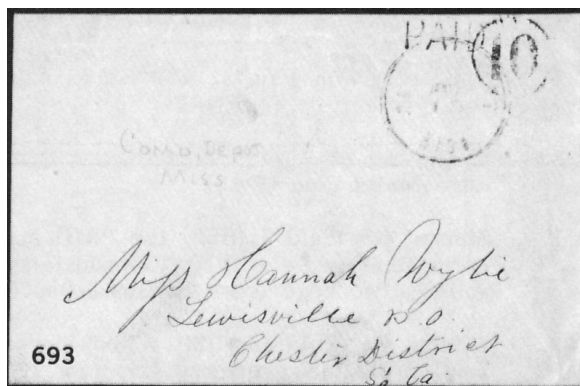 PAID
10
MISS
Como, Depot
Miss
Miss Hannah Wylie
Lewisville P.O.
Chester District
So Ca
693